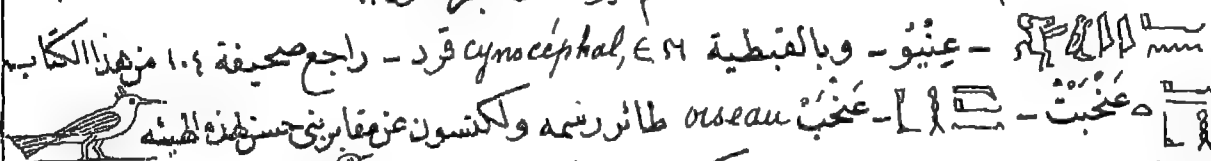 - عِنْيُو - وبالقبطية ЄΝ cynocéphal, قرد - راجع صحيفة ١٠٤ من هذا الكتاب
عَنْخَبَتْ - - عَنْخَبْ oiseau طائر رسمه ولكنسون عن مقابر بنى حسن بهذه الهيئة